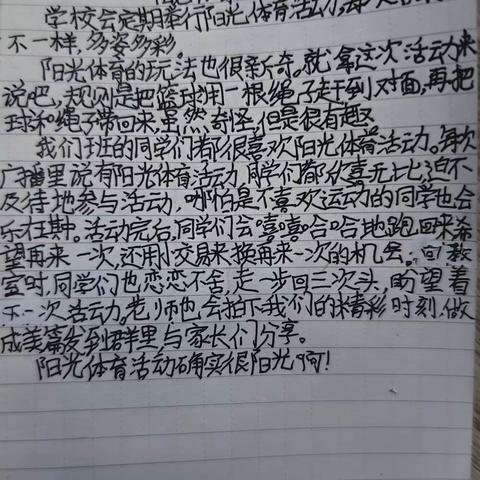 学校会定期举行阳光体育活动,每次
不一样,多姿多彩。
阳光体育的玩法也很新奇。就拿这次活动来
说吧,规则是把篮球用一根绳子赶到对面,再把
球和绳子带回来,虽然奇怪,但是很有趣。
我们班的同学们都很喜欢阳光体育活动。每次
广播里说有阳光体育活动,同学们都欣喜无比,迫不
及待地参与活动,哪怕是不喜欢运动的同学也会
乐在其中。活动完后,同学们会嘻嘻哈哈地跑回来,希
望再来一次,还用交易来换再来一次的机会。回教
室时,同学们也恋恋不舍,走一步回三次头,盼望着
下一次活动。老师也会拍下我们的精彩时刻,做
成美篇发到群里与家长们分享。
阳光体育活动确实很阳光啊!